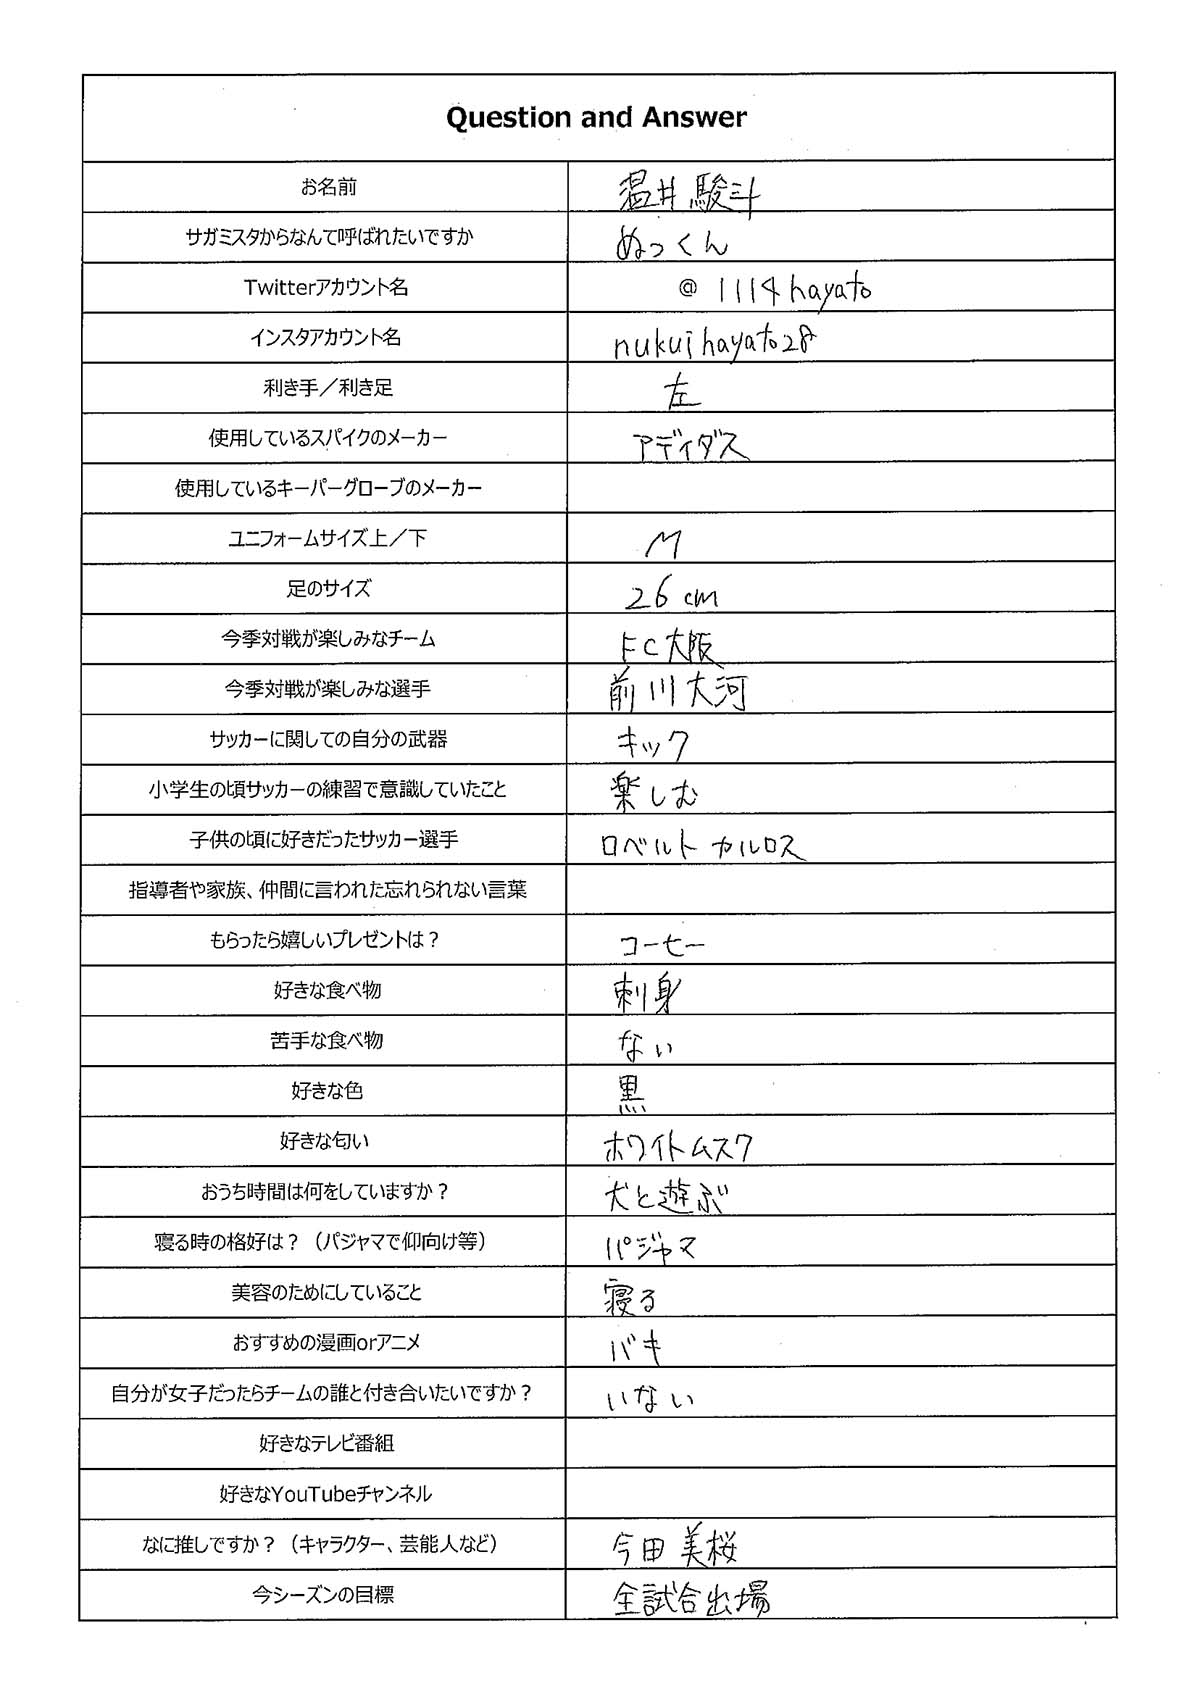 Question and Answer
お名前 温井駿斗
サガミスタからなんて呼ばれたいですか ぬっくん
Twitterアカウント名 @ 1114hayato
インスタアカウント名 nukuihayato28
利き手／利き足 左
使用しているスパイクのメーカー アディダス
使用しているキーパーグローブのメーカー
ユニフォームサイズ上／下 M
足のサイズ 26cm
今季対戦が楽しみなチーム FC大阪
今季対戦が楽しみな選手 前川大河
サッカーに関しての自分の武器 キック
小学生の頃サッカーの練習で意識していたこと 楽しむ
子供の頃に好きだったサッカー選手 ロベルト カルロス
指導者や家族、仲間に言われた忘れられない言葉
もらったら嬉しいプレゼントは？ コーヒー
好きな食べ物 刺身
苦手な食べ物 ない
好きな色 黒
好きな匂い ホワイトムスク
おうち時間は何をしていますか？ 犬と遊ぶ
寝る時の格好は？（パジャマで仰向け等） パジャマ
美容のためにしていること 寝る
おすすめの漫画orアニメ バキ
自分が女子だったらチームの誰と付き合いたいですか？ いない
好きなテレビ番組
好きなYouTubeチャンネル
なに推しですか？（キャラクター、芸能人など） 今田美桜
今シーズンの目標 全試合出場